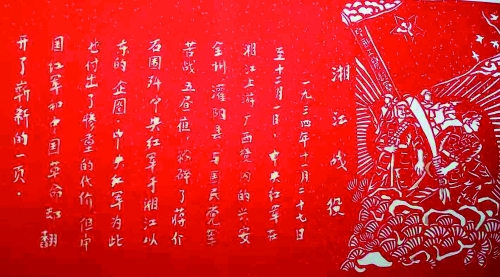 湘江战役
一九三四年十一月二十七日
至十二月一日，中央红军在
湘江上游广西境内的兴安
全州 灌阳县 与国民党军
苦战五昼夜，粉碎了蒋介
石围歼中央红军于湘江以
东的企图，中央红军为此
也付出了惨重的代价，但中
国红军和中国革命却翻
开了崭新的一页。